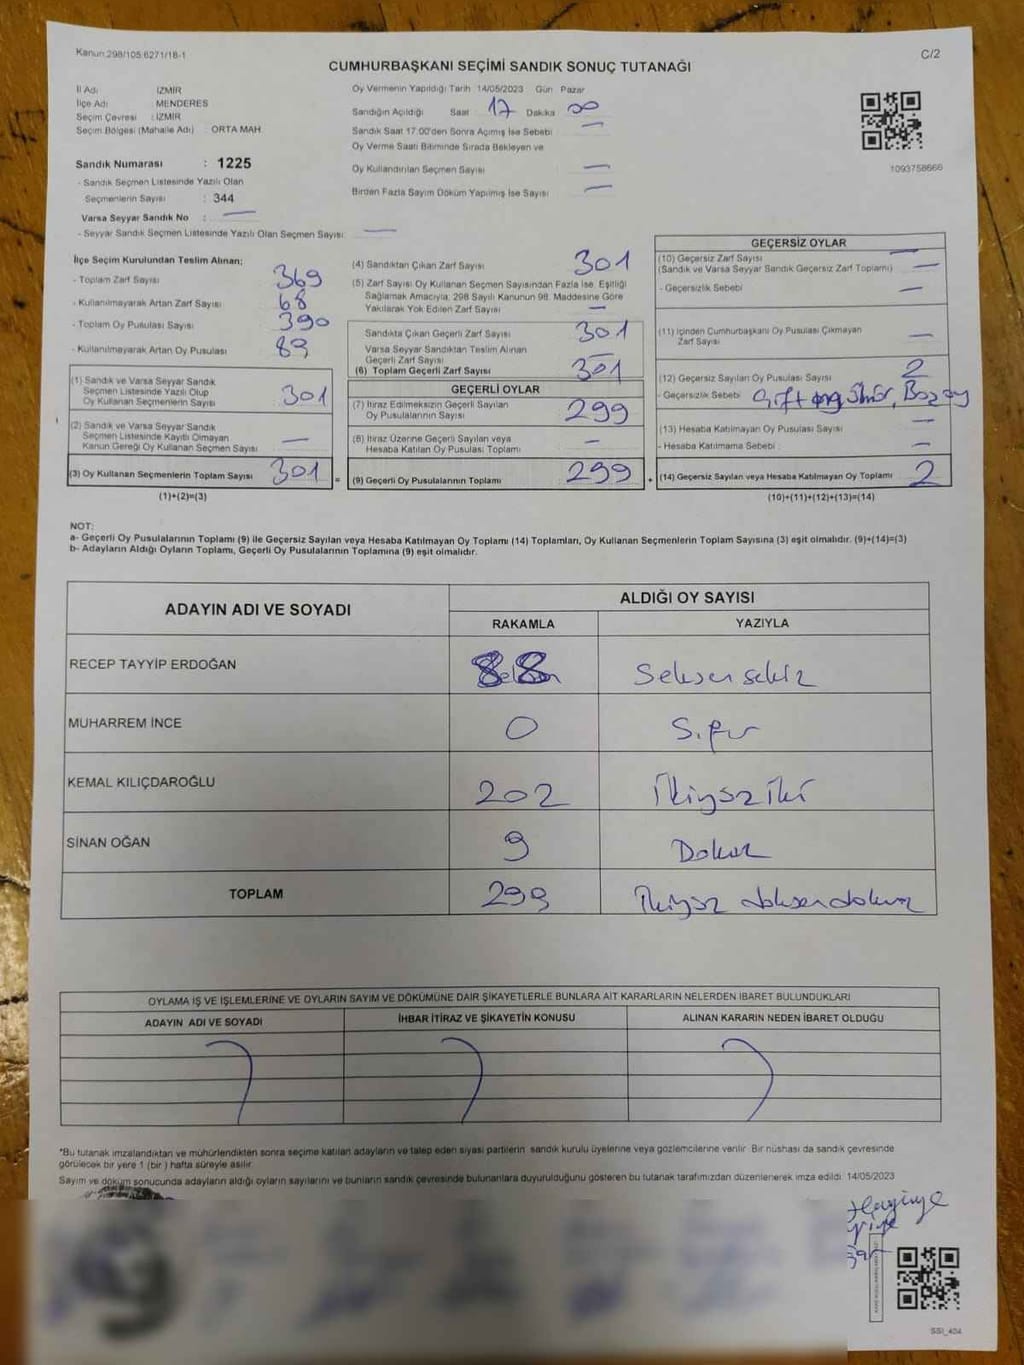 Kanun:298/105 6271/18-1
C/2
CUMHURBAŞKANI SEÇİMİ SANDIK SONUÇ TUTANAĞI
İl Adı : İZMİR
İlçe Adı : MENDERES
Seçim Çevresi : İZMİR
Seçim Bölgesi (Mahalle Adı) : ORTA MAH.
Sandık Numarası : 1225
- Sandık Seçmen Listesinde Yazılı Olan
Seçmenlerin Sayısı : 344
Varsa Seyyar Sandık No : —
- Seyyar Sandık Seçmen Listesinde Yazılı Olan Seçmen Sayısı: —
Oy Vermenin Yapıldığı Tarih 14/05/2023 Gün Pazar
Sandığın Açıldığı Saat 17 Dakika 00
Sandık Saat 17.00'den Sonra Açılmış İse Sebebi —
Oy Verme Saati Bitiminde Sırada Bekleyen ve
Oy Kullandırılan Seçmen Sayısı —
Birden Fazla Sayım Döküm Yapılmış İse Sayısı —
1093758666
İlçe Seçim Kurulundan Teslim Alınan;
- Toplam Zarf Sayısı : 369
- Kullanılmayarak Artan Zarf Sayısı : 68
- Toplam Oy Pusulası Sayısı : 390
- Kullanılmayarak Artan Oy Pusulası : 89
(1) Sandık ve Varsa Seyyar Sandık
Seçmen Listesinde Yazılı Olup
Oy Kullanan Seçmenlerin Sayısı 301
(2) Sandık ve Varsa Seyyar Sandık
Seçmen Listesinde Kayıtlı Olmayan
Kanun Gereği Oy Kullanan Seçmen Sayısı —
(3) Oy Kullanan Seçmenlerin Toplam Sayısı 301 =
(1)+(2)=(3)
(4) Sandıktan Çıkan Zarf Sayısı 301
(5) Zarf Sayısı Oy Kullanan Seçmen Sayısından Fazla İse, Eşitliği
Sağlamak Amacıyla, 298 Sayılı Kanunun 98. Maddesine Göre
Yakılarak Yok Edilen Zarf Sayısı —
Sandıkta Çıkan Geçerli Zarf Sayısı 301
Varsa Seyyar Sandıktan Teslim Alınan
Geçerli Zarf Sayısı —
(6) Toplam Geçerli Zarf Sayısı 301
GEÇERLİ OYLAR
(7) İtiraz Edilmeksizin Geçerli Sayılan
Oy Pusulalarının Sayısı 299
(8) İtiraz Üzerine Geçerli Sayılan veya
Hesaba Katılan Oy Pusulası Toplamı —
(9) Geçerli Oy Pusulalarının Toplamı 299 +
GEÇERSİZ OYLAR
(10) Geçersiz Zarf Sayısı —
(Sandık ve Varsa Seyyar Sandık Geçersiz Zarf Toplamı) —
- Geçersizlik Sebebi —
(11) İçinden Cumhurbaşkanı Oy Pusulası Çıkmayan
Zarf Sayısı —
(12) Geçersiz Sayılan Oy Pusulası Sayısı 2
- Geçersizlik Sebebi
(13) Hesaba Katılmayan Oy Pusulası Sayısı —
- Hesaba Katılmama Sebebi —
(14) Geçersiz Sayılan veya Hesaba Katılmayan Oy Toplamı 2
(10)+(11)+(12)+(13)=(14)
NOT:
a- Geçerli Oy Pusulalarının Toplamı (9) ile Geçersiz Sayılan veya Hesaba Katılmayan Oy Toplamı (14) Toplamları, Oy Kullanan Seçmenlerin Toplam Sayısına (3) eşit olmalıdır. (9)+(14)=(3)
b- Adayların Aldığı Oyların Toplamı, Geçerli Oy Pusulalarının Toplamına (9) eşit olmalıdır.
ADAYIN ADI VE SOYADI
ALDIĞI OY SAYISI
RAKAMLA YAZIYLA
RECEP TAYYİP ERDOĞAN 88 Seksensekiz
MUHARREM İNCE 0 Sıfır
KEMAL KILIÇDAROĞLU 202 İkiyüziki
SİNAN OĞAN 9 Dokuz
TOPLAM 299 İkiyüz doksandokuz
OYLAMA İŞ VE İŞLEMLERİNE VE OYLARIN SAYIM VE DÖKÜMÜNE DAİR ŞİKAYETLERLE BUNLARA AİT KARARLARIN NELERDEN İBARET BULUNDUKLARI
ADAYIN ADI VE SOYADI İHBAR İTİRAZ VE ŞİKAYETİN KONUSU ALINAN KARARIN NEDEN İBARET OLDUĞU
*Bu tutanak imzalandıktan ve mühürlendikten sonra seçime katılan adayların ve talep eden siyasi partilerin sandık kurulu üyelerine veya gözlemcilerine verilir. Bir nüshası da sandık çevresinde
görülecek bir yere 1 (bir ) hafta süreyle asılır.
Sayım ve döküm sonucunda adayların aldığı oyların sayılarını ve bunların sandık çevresinde bulunanlara duyurulduğunu gösteren bu tutanak tarafımızdan düzenlenerek imza edildi. 14/05/2023